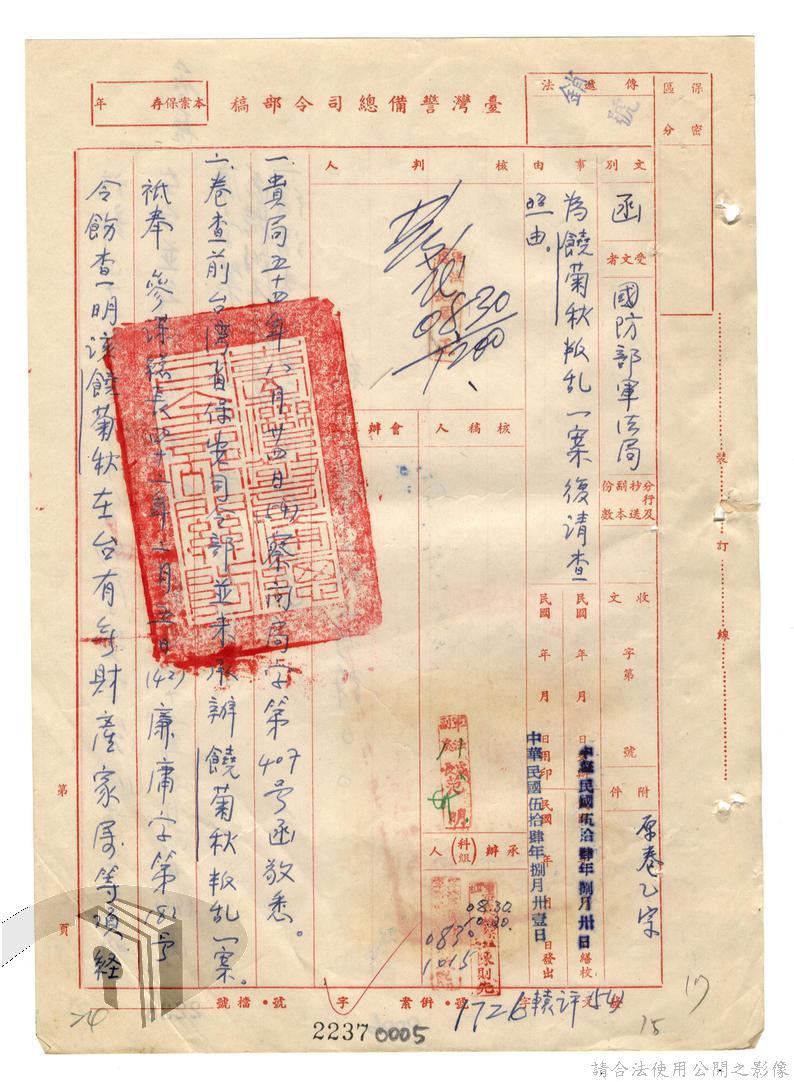 保密
區分
傳遞
法
銷號
臺灣警備總司令部稿
本案保存 年
文別
函
受文者
國防部軍法局
分行及
抄送
副本
份數
收文 字第 號
附件
原卷乙宗
事由
為饒菊秋叛乱一案復請查
照由。
民國 年 月 日
民國 年 月 日用印
民國 年 月 日發出
繕校
中華民國伍拾肆年捌月卅日
中華民國伍拾肆年捌月卅壹日
核判人
0830
1200
核稿人
會辦
承辦(科組)人
08.30.
0830
1015
陳則先
一、貴局五十四年八月廿四日(54)察向局字第407号函敬悉。
二、卷查前台灣省保安司令部並未承辦饒菊秋叛乱一案。
祇奉 參謀總長四十二年二月五日(42)廉庸字第182号
令飭查明該饒菊秋在台有無財產家屬等項経
第 頁
裝訂線
檔號
案字 號
2237 0005
15
17
請合法使用公開之影像